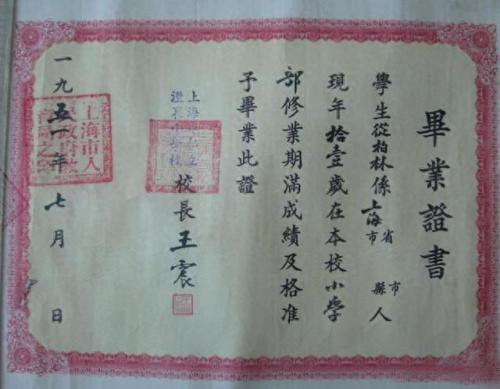 畢業證書
學生從柏林係上海市省 縣市人
現年拾壹歲在本校小學
部修業期滿成績及格准
予畢業此證
校長王震
一九五一年七月 日
上海市人